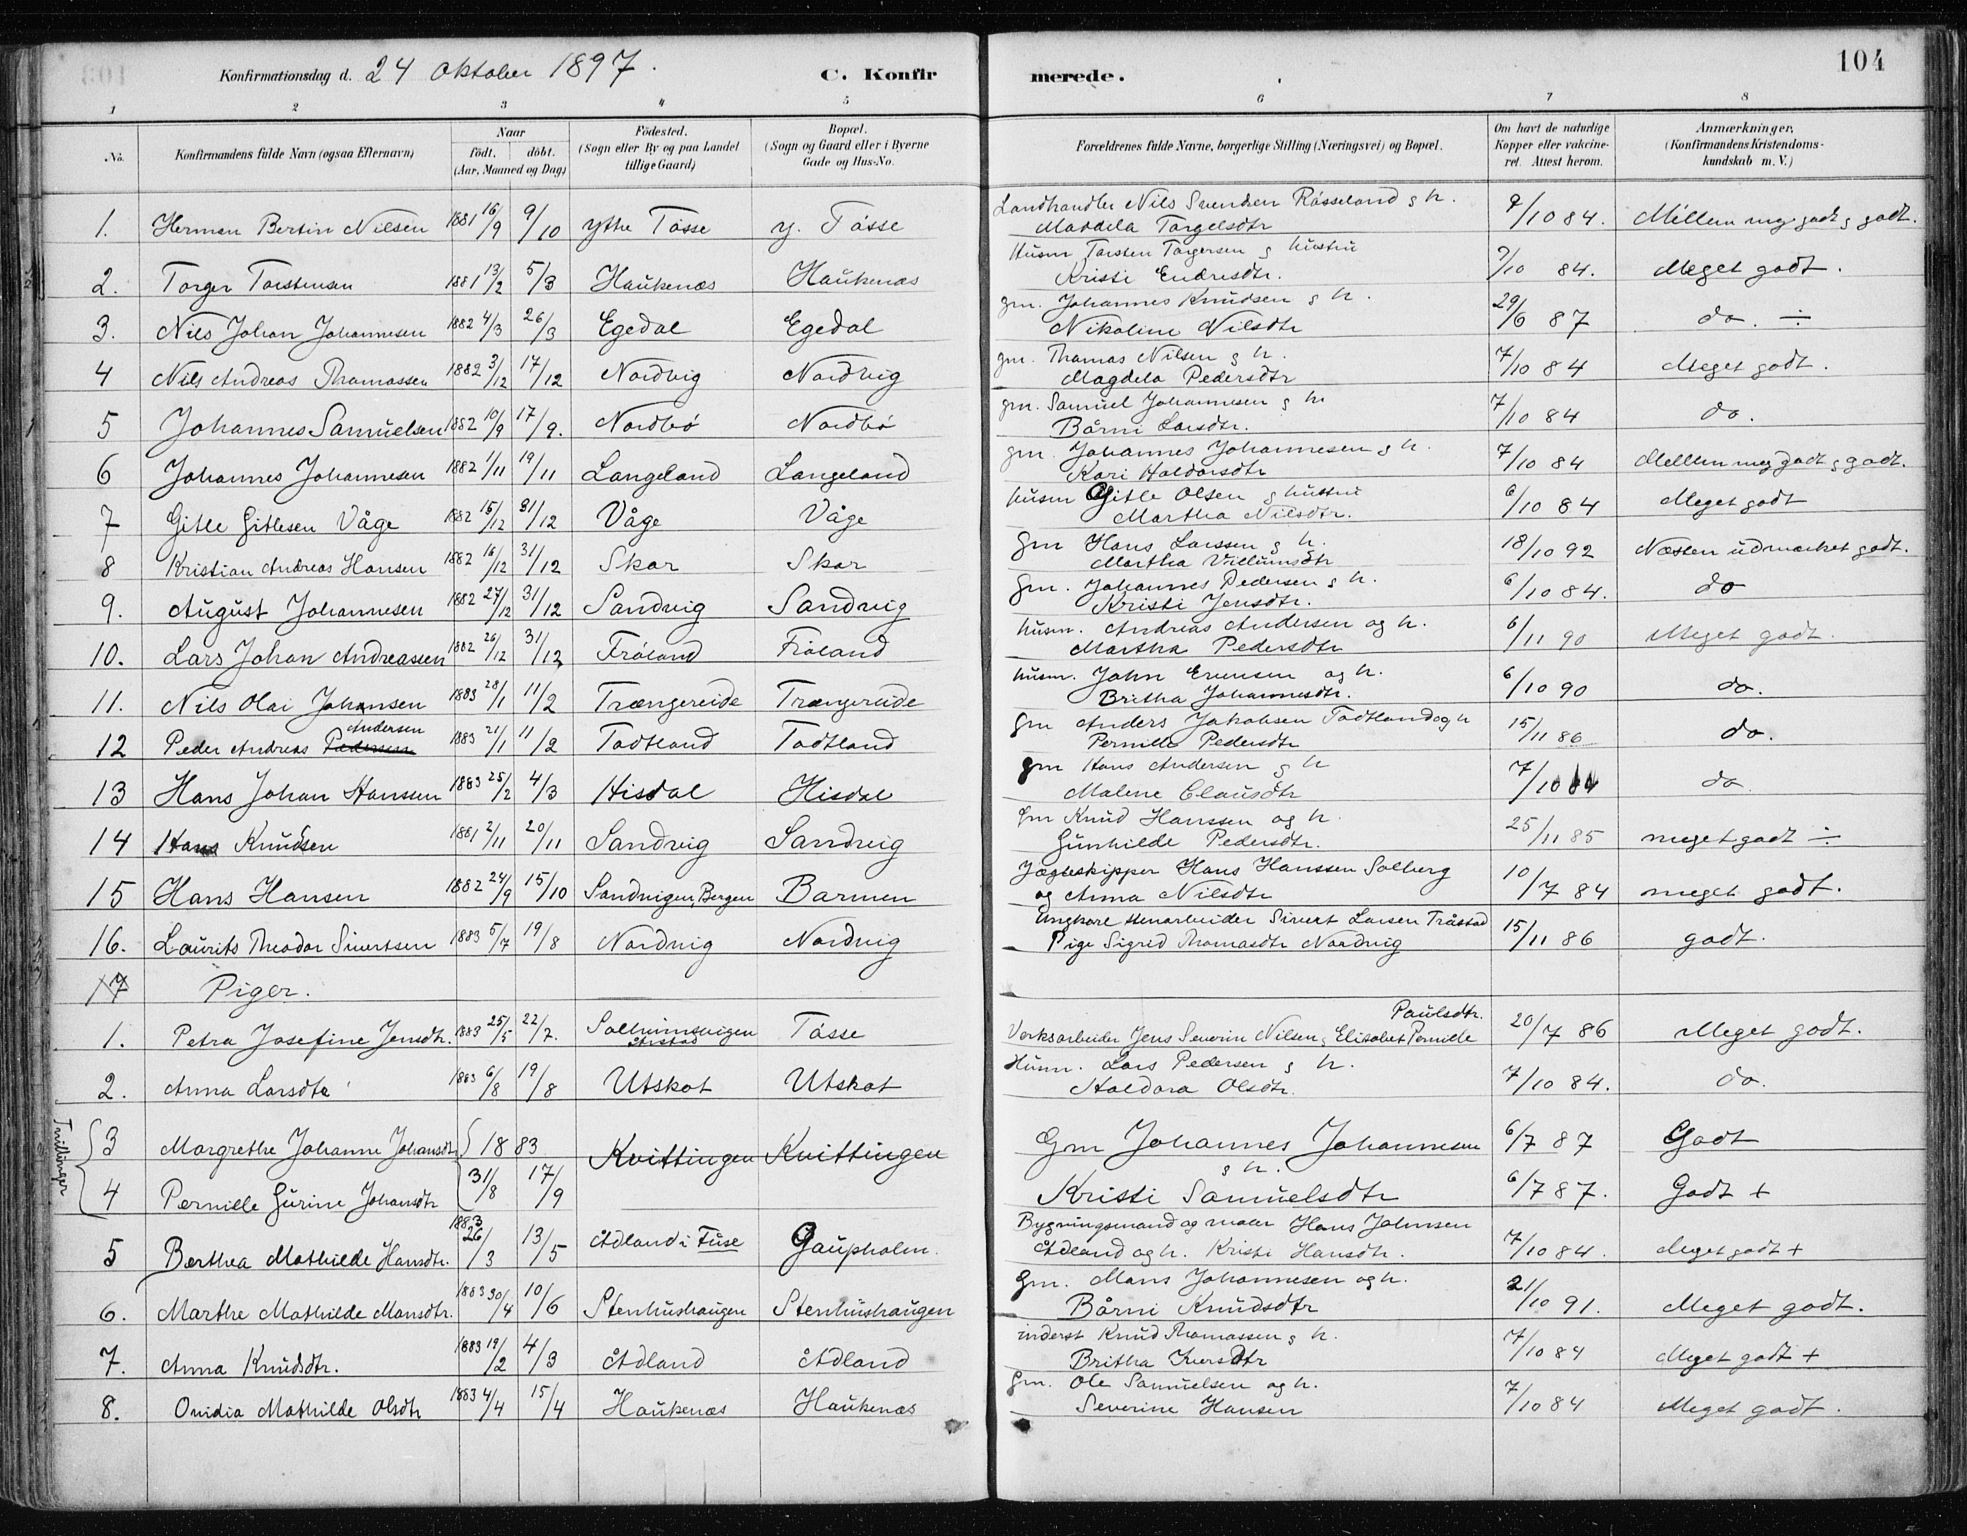 Konfirmationsdag d. 24 Oktober 1897.
C. Konfirmerede.
104
1 2 3 4 5 6 7 8
No.
Konfirmandens fulde Navn (ogsaa Efternavn)
Naar
født, døbt.
(Aar, Maaned og Dag)
Födested.
(Sogn eller By og paa Landet tillige Gaard)
Bopæl.
(Sogn og Gaard eller i Byerne Gade og Hus-No.
Forældrenes fulde Navne, borgerlige Stilling (Næringsvei) og Bopæl.
Om havt de naturlige Kopper eller vakcineret. Attest herom.
Anmærkninger,
(Konfirmandens Kristendomskundskab m. V.)
1. Herman Bertin Nilsen 1881 16/9 9/10 ytre Tösse y. Tösse Landhandler Nils Svendsen Rösseland & h. Matdela Torgelsdtr 9/10 84. Mellem meg godt & godt.
2. Torger Torstensen 1881 13/2 5/3 Haukenæs Haukenæs Husm Torsten Torgersen & hustru Kristi Endresdtr. 9/10 84. Meget godt.
3. Nils Johan Johannesen 1882 4/3 26/3 Egedal Egedal gm. Johannes Knudsen & h. Nikoline Nilsdtr 29/6 87 do. ÷
4 Nils Andreas Thomassen 1882 3/12 17/12 Nordvig Nordvig gm. Thomas Nilsen & h. Magdela Pedersdtr 7/10 84 Meget godt.
5 Johannes Samuelsen 1882 10/9 17/9. Nordbö Nordbö gm. Samuel Johannesen & h Bårni Larsdtr. 7/10 84 do.
6 Johannes Johannesen 1882 1/11 19/11 Langeland Langeland gm. Johannes Johannesen & h. Kari Haldorsdtr 7/10 84 Mellem meg godt & godt.
7 Gitle Gitlesen Våge 1882 15/12 31/12 Våge Våge husm Gitle Olsen & hustru Martha Nilsdtr. 6/10 84 Meget godt
8 Kristian Andreas Hansen 1882 16/12 31/12 Skar Skar Gm Hans Larssen & h. Martha Villumsdtr 18/10 92 Næsten udmærket godt.
9. August Johannesen 1882 27/12 31/12 Sandvig Sandvig Gm. Johannes Pedersen & h. Kristi Jensdtr. 6/10 84. do
10. Lars Johan Andreassen 1882 26/12 31/12 Fröland Fröland husm. Andreas Andersen og h. Martha Pedersdtr 6/11 90 Meget godt.
11. Nils Olai Johansen 1883 28/1 11/2 Trængereide Trængereide husm. John Evensen og h. Britha Johannesdtr. 6/10 90 do.
12 Peder Andreas Pedersen Andersen 1883 21/1 11/2 Todtland Todtland Gm Anders Jakobsen Todtland og h Pernille Pedersdtr 15/11 86 do.
13 Hans Johan Hansen 1883 25/2 4/3 Hisdal Hisdal gm Hans Andersen & h Malene Clausdtr 7/10 84 do
14 Hans Knudsen 1881 2/11 20/11 Sandvig Sandvig Gm Knud Hanssen og h. Gunhilde Pedersdtr. 25/11 85 meget godt ÷
15 Hans Hansen 1882 24/9 15/10 Sandvigen, Bergen Barmen Jægteskipper Hans Hanssen Solberg og Anna Nilsdtr 10/7 84 meget godt.
16. Laurits Theodor Sivertsen 1883 5/7 19/8 Nordvig Nordvig Ungkarl stenarbeider Sivert Larsen Tråstad Pige Sigrid Thomasdtr Nordvig 15/11 86 godt.
17 Piger.
1. Petra Josefine Jensdtr. 1883 25/5 22/7. Solheimsvigen Årstad Tösse Verksarbeider Jens Severin Nilsen & Elisabet Pernille Paulsdtr. 20/7 86 Meget godt.
2. Anna Larsdtr 1883 6/8 19/8 Utskot Utskot Husm. Lars Pedersen & h. Haldora Olsdtr. 7/10 84. do.
Tvillinger
3 Margrethe Johanne Johansdtr 1883 Kvittingen Kvittingen Gm Johannes Johannesen & h. 6/7 87 Godt
4 Pernille Gurine Johansdtr 31/8 17/9 Kristi Samuelsdtr 6/7 87. Godt +
5 Berthea Mathilde Hansdtr. 1883 26/3 13/5 Ådland i Fuse Gaupholm. Bygningsmand og maler Hans Johnsen Ådland og h. Kristi Hansdtr. 7/10 84. Meget godt +
6. Marthe Mathilde Monsdtr. 1883 30/4 10/6 Stenhushaugen Stenhushaugen Gm. Mons Johannesen og h. Bårni Knudsdtr 21/10 91. Meget godt.
7. Anna Knudsdtr. 1883 19/2 4/3 Ådland Ådland inderst Knud Thomassen & h. Britha Iversdtr 7/10 84 Meget godt +
8. Ovidia Mathilde Olsdtr 1883 4/4 15/4 Haukenæs Haukenæs Gm. Ole Samuelsen og h. Severine Hansen 7/10 84 Meget godt.